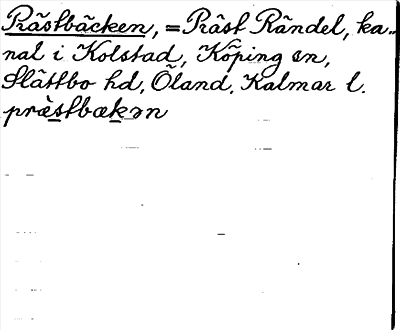 Prästbäcken, = Präst Rändel, ka-
nal i Kolstad, Köping sn,
Slättbo hd, Öland, Kalmar l.
præ̀stbækən